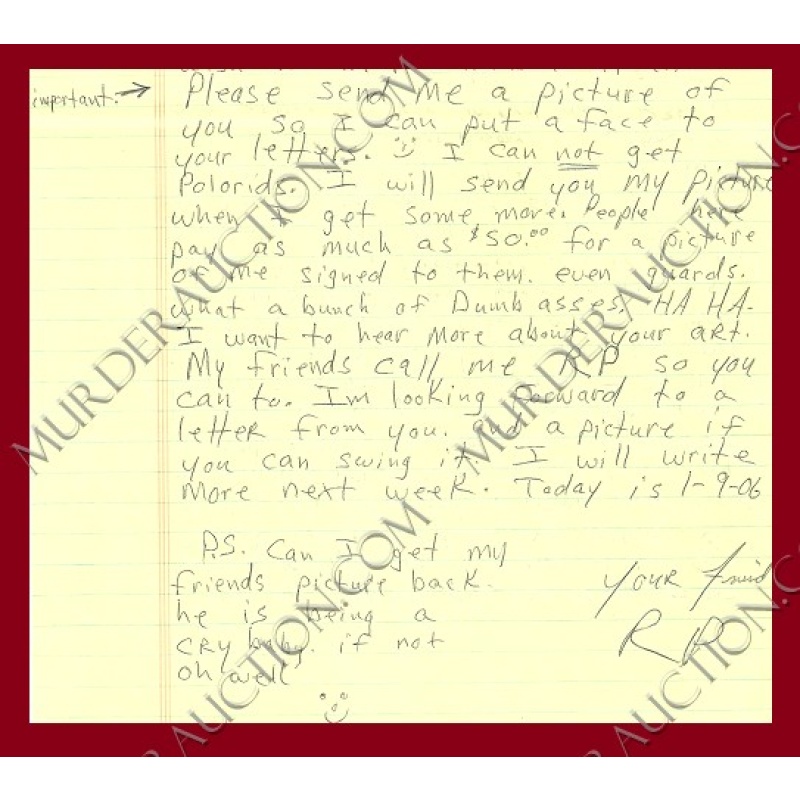 important. → Please send me a picture of
you so I can put a face to
your letters. I can not get
Polorids. I will send you my picture
when I get some more. People here
pay as much as $50.00 for a picture
of me signed to them. even guards.
what a bunch of Dumb asses. HA HA.
I want to hear more about your art.
My friends call me RP so you
can to. Im looking forward to a
letter from you. and a picture if
you can swing it. I will write
more next week. Today is 1-9-06
P.S. Can I get my
friends picture back.
he is being a
cry baby. if not
oh well
your friend
RP
MURDERAUCTION.COM
MURDERAUCTION.COM